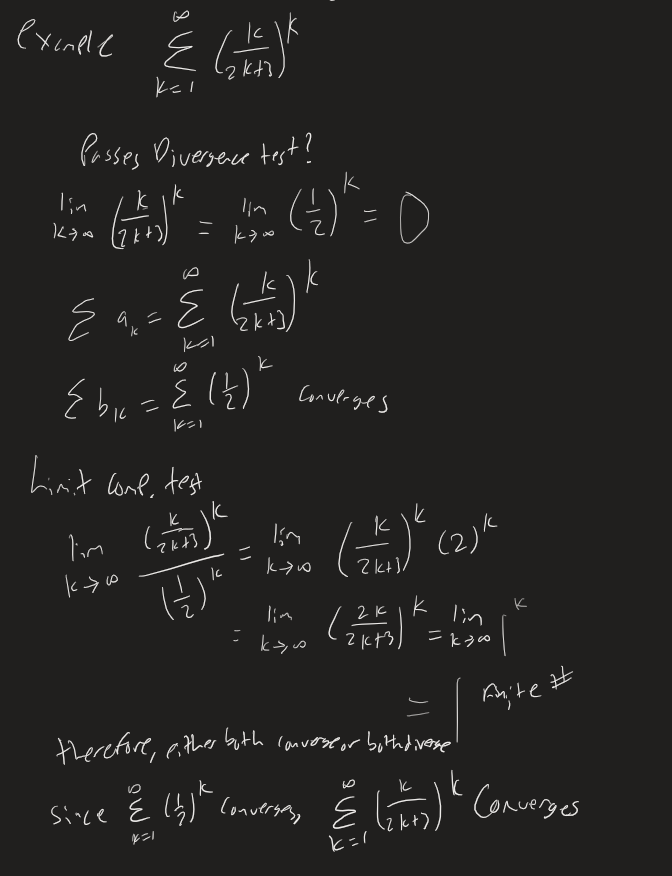 Example \sum_{k=1}^{\infty} \left(\frac{k}{2k+3}\right)^k
Passes Divergence test?
\lim_{k \to \infty} \left(\frac{k}{2k+3}\right)^k = \lim_{k \to \infty} \left(\frac{1}{2}\right)^k = 0
\sum a_k = \sum_{k=1}^{\infty} \left(\frac{k}{2k+3}\right)^k
\sum b_k = \sum_{k=1}^{\infty} \left(\frac{1}{2}\right)^k converges
Limit Comp. test
\lim_{k \to \infty} \frac{\left(\frac{k}{2k+3}\right)^k}{\left(\frac{1}{2}\right)^k} = \lim_{k \to \infty} \left(\frac{k}{2k+3}\right)^k (2)^k
= \lim_{k \to \infty} \left(\frac{2k}{2k+3}\right)^k = \lim_{k \to \infty} 1^k
= 1 finite #
therefore, either both converge or both diverge
since \sum_{k=1}^{\infty} \left(\frac{1}{2}\right)^k converges, \sum_{k=1}^{\infty} \left(\frac{k}{2k+3}\right)^k Converges